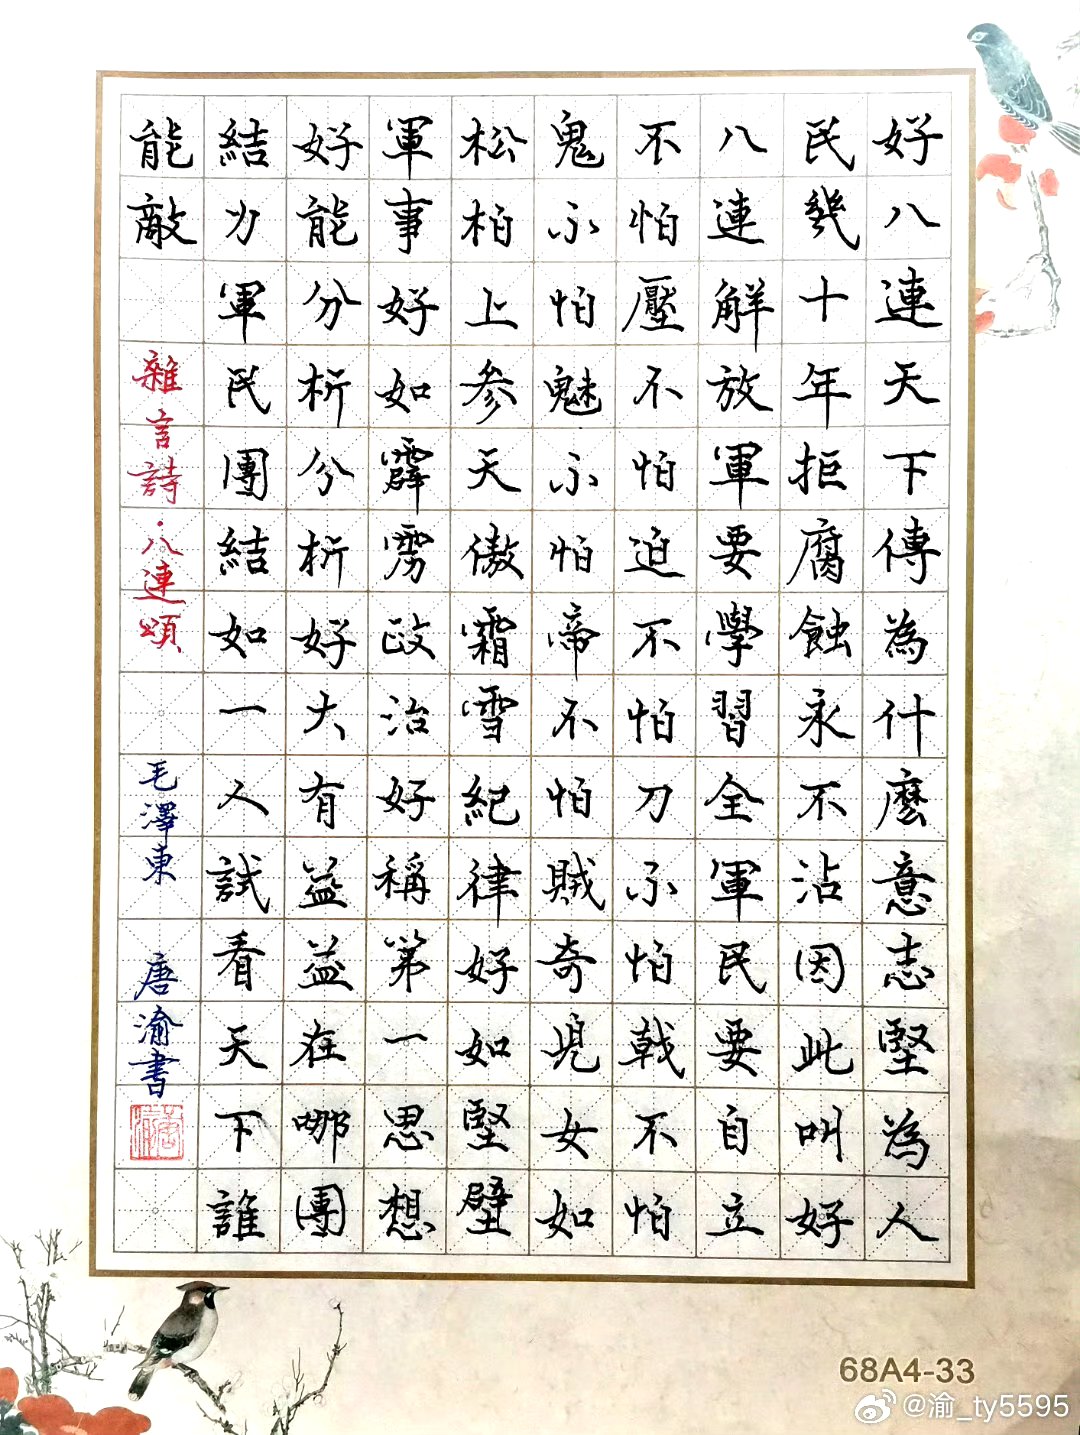 好八連天下傳為什麼意志堅為人
民幾十年拒腐蝕永不沾因此叫好
八連解放軍要學習全軍民要自立
不怕壓不怕迫不怕刀不怕戟不怕
鬼不怕魅不怕帝不怕賊奇兒女如
松柏上參天傲霜雪紀律好如堅壁
軍事好如霹雳政治好稱第一思想
好能分析分析好大有益益在哪團
結力軍民團結如一人試看天下誰
能敵
雜言詩·八連頌
毛澤東
唐渝書
68A4-33
@渝_ty5595